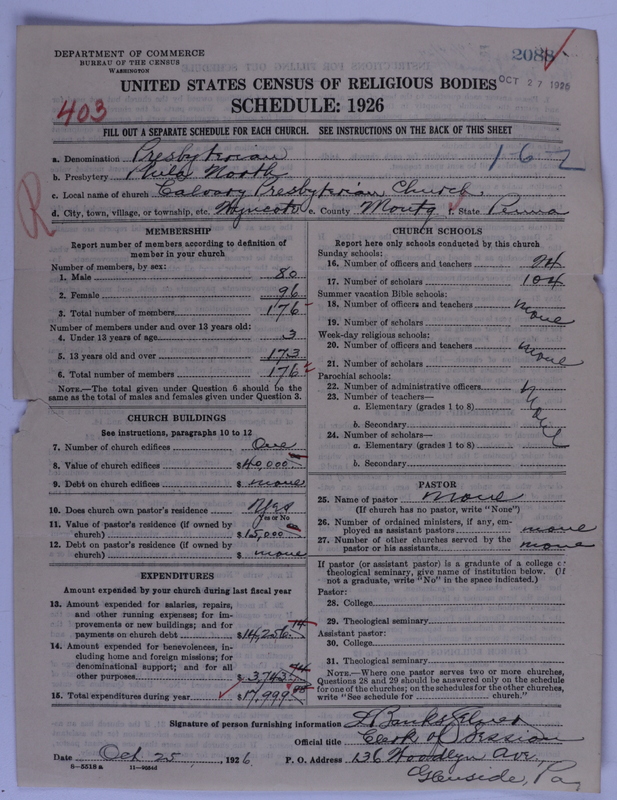 DEPARTMENT OF COMMERCE
BUREAU OF THE CENSUS
WASHINGTON
2088
OCT 27 1926
UNITED STATES CENSUS OF RELIGIOUS BODIES
SCHEDULE: 1926
403
FILL OUT A SEPARATE SCHEDULE FOR EACH CHURCH. SEE INSTRUCTIONS ON THE BACK OF THIS SHEET
a. Denomination Presbyterian
1-6-2
b. Presbytery Phila North
c. Local name of church Calvary Presbyterian Church.
d. City, town, village, or township, etc. Wyncote e. County Montg f. State Penna
R
MEMBERSHIP
Report number of members according to definition of member in your church
Number of members, by sex:
1. Male 80
2. Female 96
3. Total number of members 176
Number of members under and over 13 years old:
4. Under 13 years of age 3
5. 13 years old and over 173
6. Total number of members 176
NOTE.—The total given under Question 6 should be the same as the total of males and females given under Question 3.
CHURCH BUILDINGS
See instructions, paragraphs 10 to 12
7. Number of church edifices One
8. Value of church edifices $40,000
9. Debt on church edifices $ none
10. Does church own pastor's residence Yes
(Yes or No)
11. Value of pastor's residence (if owned by church) $15,000
12. Debt on pastor's residence (if owned by church) $ none
EXPENDITURES
Amount expended by your church during last fiscal year
13. Amount expended for salaries, repairs, and other running expenses; for improvements or new buildings; and for payments on church debt $14,256.
14. Amount expended for benevolences, including home and foreign missions; for denominational support; and for all other purposes $3,743
15. Total expenditures during year $17,999
CHURCH SCHOOLS
Report here only schools conducted by this church
Sunday schools:
16. Number of officers and teachers 24
17. Number of scholars 104
Summer vacation Bible schools:
18. Number of officers and teachers none
19. Number of scholars
Week-day religious schools:
20. Number of officers and teachers none
21. Number of scholars
Parochial schools:
22. Number of administrative officers
23. Number of teachers—
a. Elementary (grades 1 to 8)
b. Secondary
24. Number of scholars—
a. Elementary (grades 1 to 8)
b. Secondary
PASTOR
25. Name of pastor none
(If church has no pastor, write "None")
26. Number of ordained ministers, if any, employed as assistant pastors none
27. Number of other churches served by the pastor or his assistants none
If pastor (or assistant pastor) is a graduate of a college or theological seminary, give name of institution below. (If not a graduate, write "No" in the space indicated.)
Pastor:
28. College
29. Theological seminary
Assistant pastor:
30. College
31. Theological seminary
NOTE.—Where one pastor serves two or more churches, Questions 28 and 29 should be answered only on the schedule for one of the churches; on the schedules for the other churches, write "See schedule for church."
Signature of person furnishing information Banks
Official title Clerk of Session
Date Oct 25, 1926 P. O. Address 136 Woodlyn Ave.,
8-5518 a
Glenside, Pa